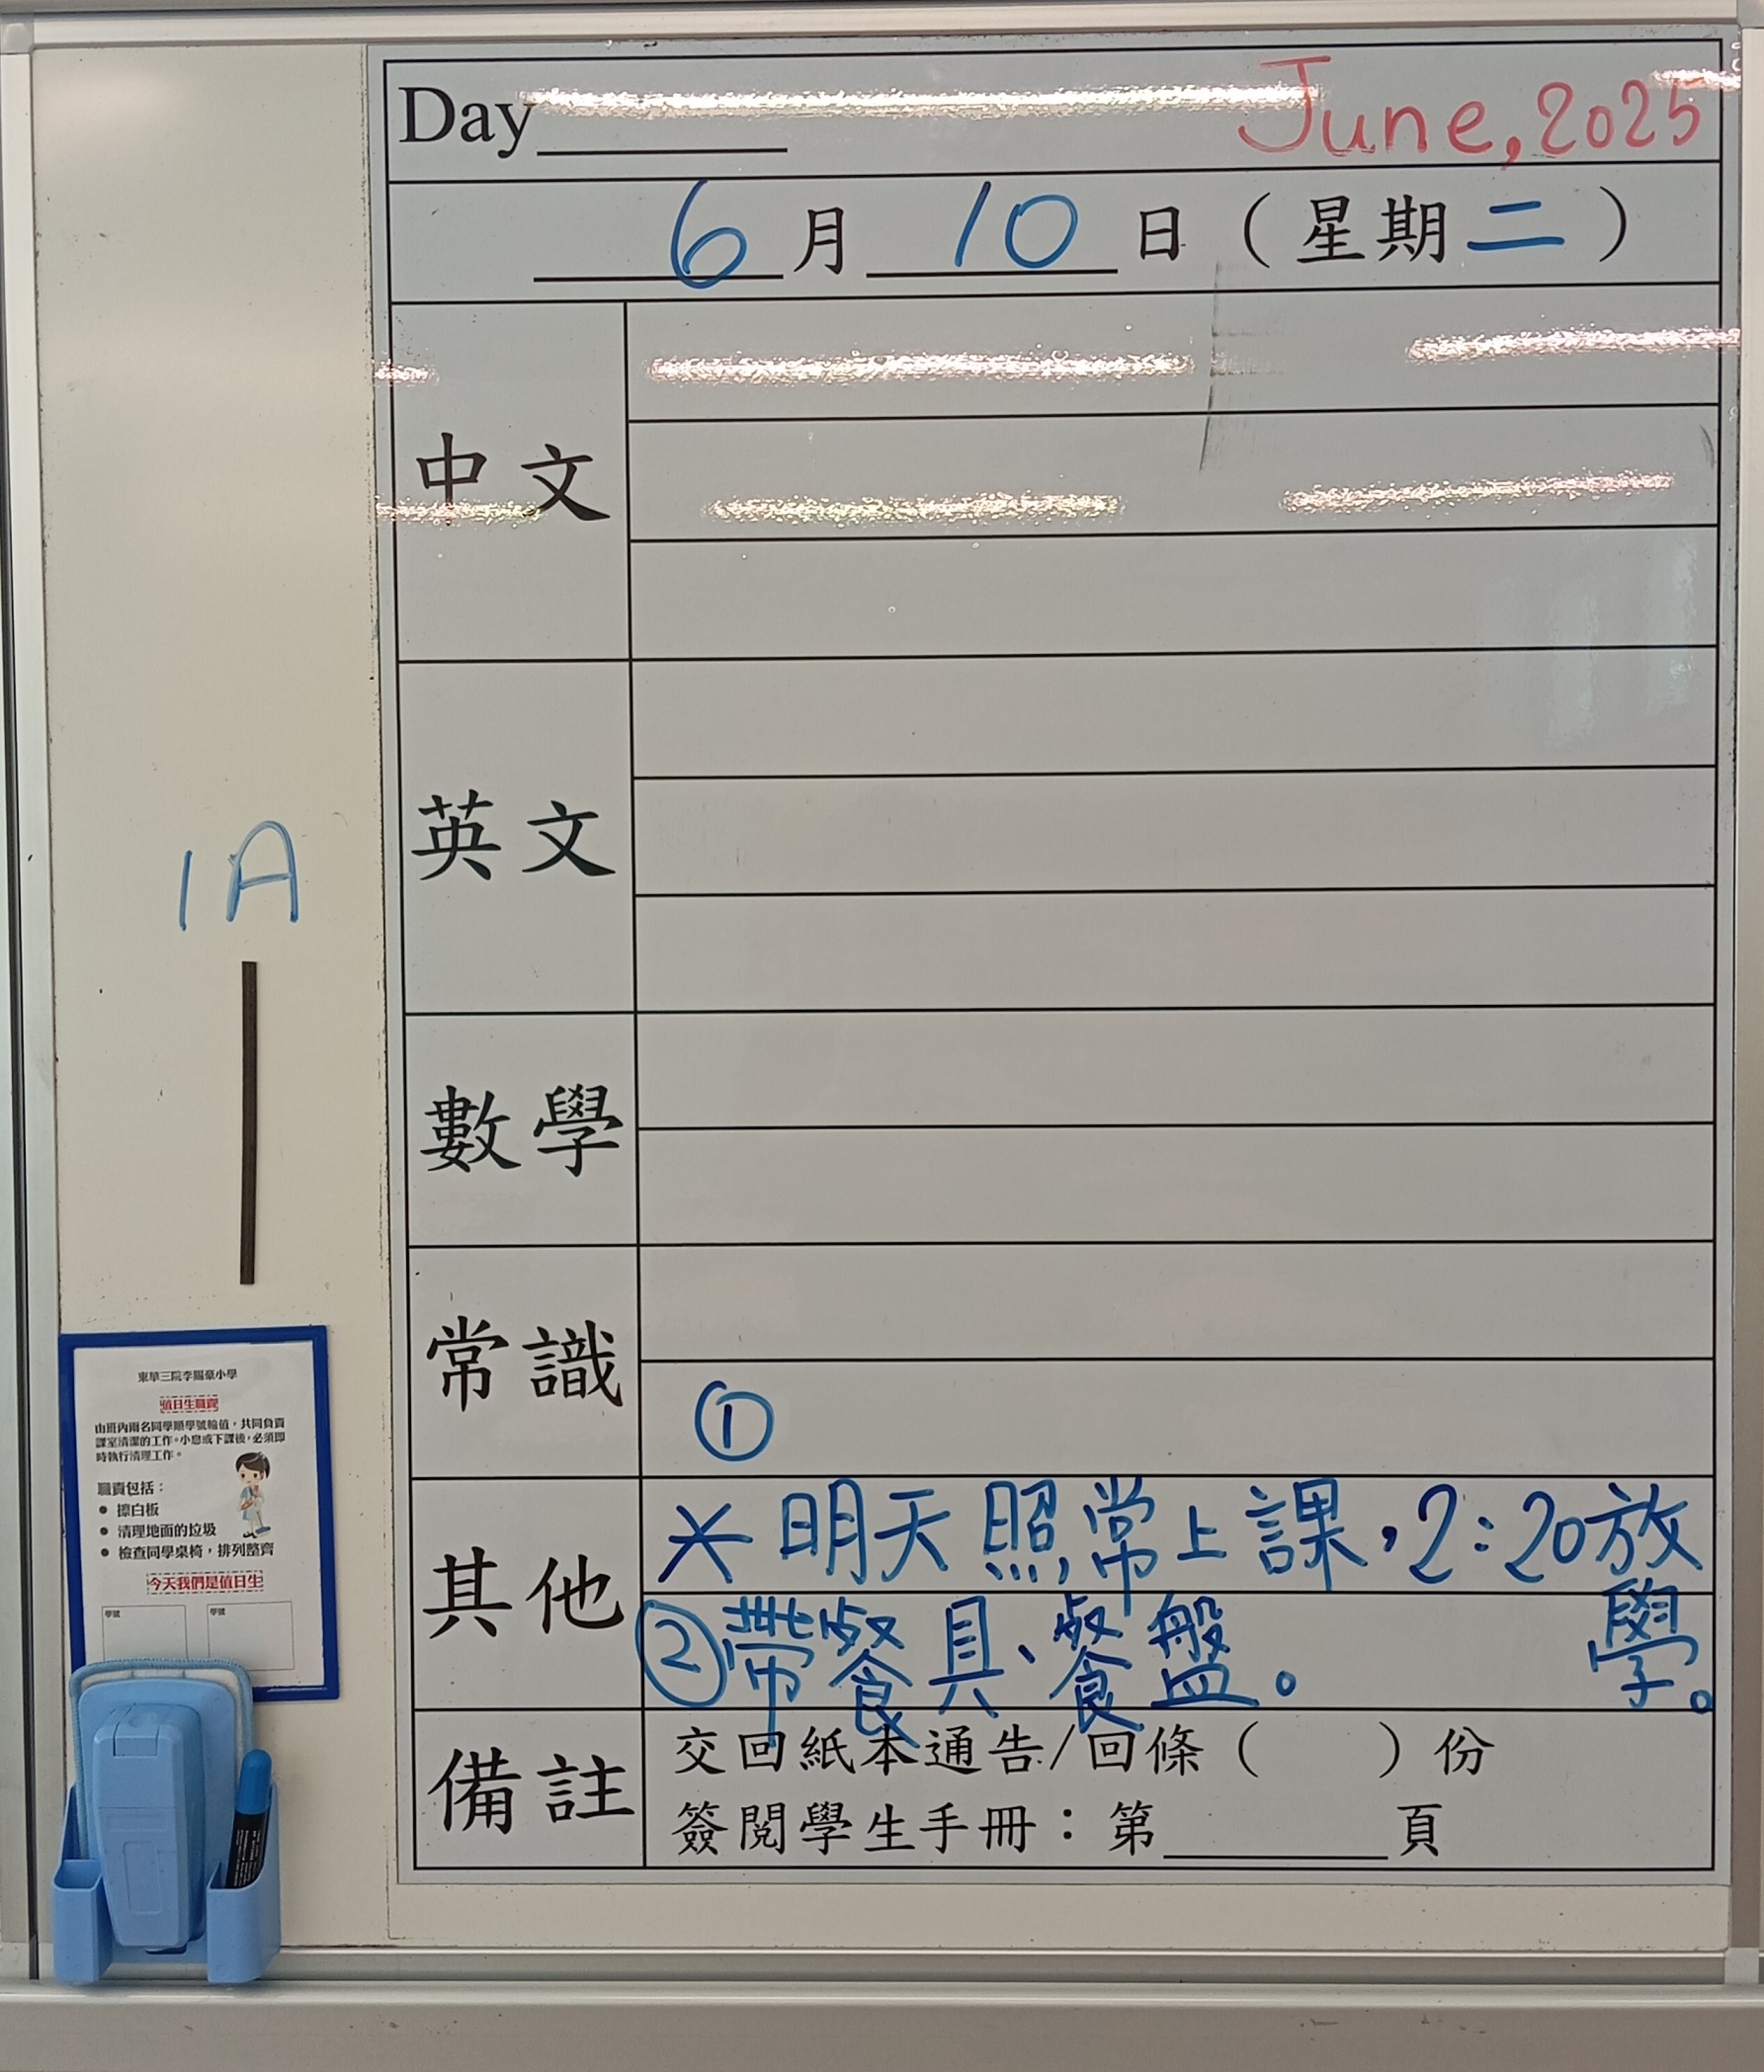 Day
June, 2025
6月10日（星期二）
中文
英文
1A
數學
常識
①
其他
＊明天照常上課，2:20放
學。
②帶餐具、餐盤。
備註
交回紙本通告/回條（　　）份
簽閱學生手冊：第　　頁
東華三院李賜豪小學
值日生職責
由班內兩名同學順學號輪值，共同負責
課室清潔的工作。小息或下課後，必須即
時執行清理工作。
職責包括：
● 擦白板
● 清理地面的垃圾
● 檢查同學桌椅，排列整齊
今天我們是值日生
學號
學號